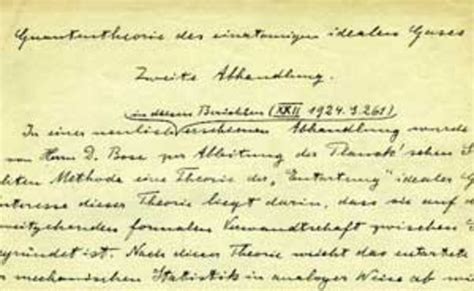 Quantentheorie des einatomigen idealen Gases
Zweite Abhandlung.
in diesen Berichten (XXII 1924. S. 261)
In einer neulich erschienen Abhandlung wurde
von Herrn D. Bose zur Ableitung der Planck'schen S
hten Methode eine Theorie der „Entartung" idealer G
nteresse dieser Theorie liegt darin, dass sie auf d
weitgehenden formalen Verwandtschaft zwischen S
egründet ist. Nach dieser Theorie weicht das entartete
r mechanischen Statistik in analoger Weise ab wi